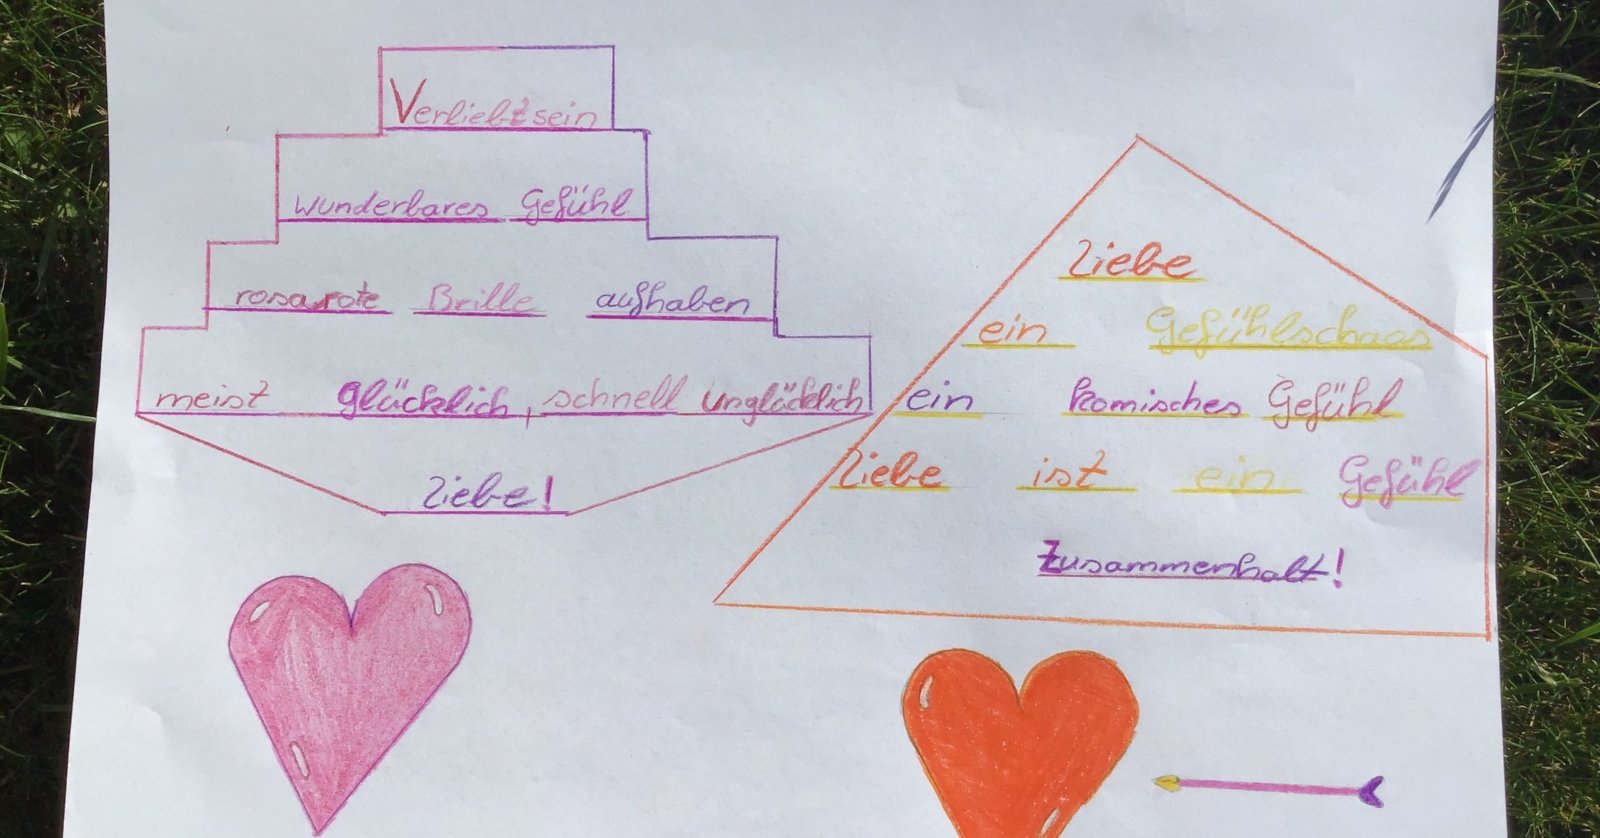 Verliebtsein
wunderbares Gefühl
rosarote Brille aufhaben
meist glücklich, schnell unglücklich
Liebe!
Liebe
ein Gefühlschaos
ein komisches Gefühl
Liebe ist ein Gefühl
Zusammenhalt!